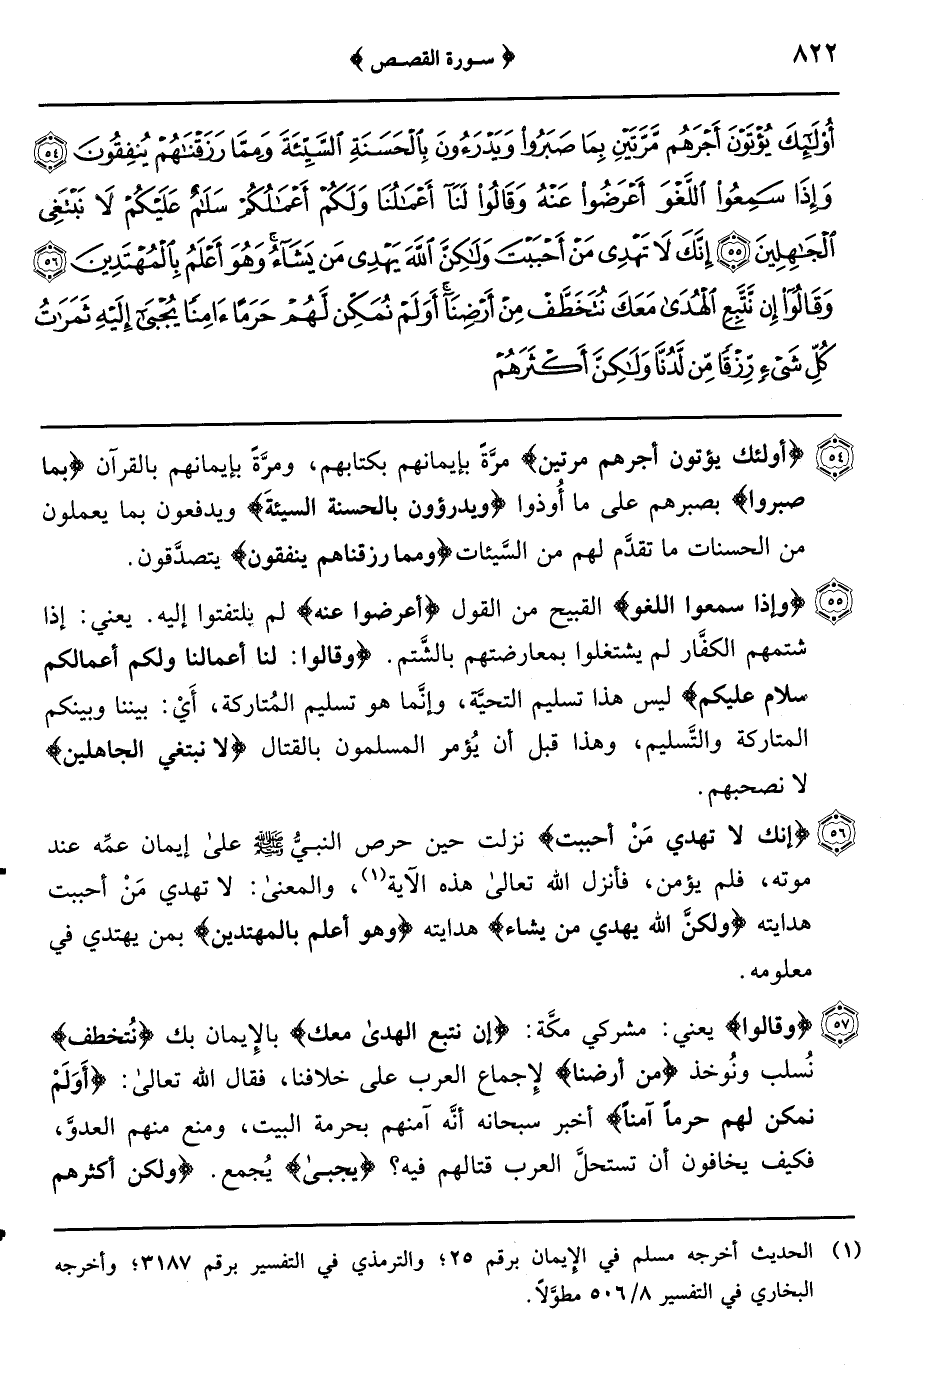 ٨٢٢
﴿ سورة القصص ﴾
أُوْلَٰٓئِكَ يُؤْتَوْنَ أَجْرَهُم مَّرَّتَيْنِ بِمَا صَبَرُواْ وَيَدْرَءُونَ بِٱلْحَسَنَةِ ٱلسَّيِّئَةَ وَمِمَّا رَزَقْنَٰهُمْ يُنفِقُونَ ٥٤
وَإِذَا سَمِعُواْ ٱللَّغْوَ أَعْرَضُواْ عَنْهُ وَقَالُواْ لَنَآ أَعْمَٰلُنَا وَلَكُمْ أَعْمَٰلُكُمْ سَلَٰمٌ عَلَيْكُمْ لَا نَبْتَغِى
ٱلْجَٰهِلِينَ ٥٥ إِنَّكَ لَا تَهْدِى مَنْ أَحْبَبْتَ وَلَٰكِنَّ ٱللَّهَ يَهْدِى مَن يَشَآءُ ۚ وَهُوَ أَعْلَمُ بِٱلْمُهْتَدِينَ ٥٦
وَقَالُوٓاْ إِن نَّتَّبِعِ ٱلْهُدَىٰ مَعَكَ نُتَخَطَّفْ مِنْ أَرْضِنَآ ۚ أَوَلَمْ نُمَكِّن لَّهُمْ حَرَمًا ءَامِنًا يُجْبَىٰٓ إِلَيْهِ ثَمَرَٰتُ
كُلِّ شَىْءٍ رِّزْقًا مِّن لَّدُنَّا وَلَٰكِنَّ أَكْثَرَهُمْ
٥٤ ﴿أولئك يؤتون أجرهم مرتين﴾ مرَّةً بإيمانهم بكتابهم، ومرَّةً بإيمانهم بالقرآن ﴿بما
صبروا﴾ بصبرهم على ما أُوذوا ﴿ويدرؤون بالحسنة السيئة﴾ ويدفعون بما يعملون
من الحسنات ما تقدَّم لهم من السَّيئات ﴿ومما رزقناهم ينفقون﴾ يتصدَّقون.
٥٥ ﴿وإذا سمعوا اللغو﴾ القبيح من القول ﴿أعرضوا عنه﴾ لم يلتفتوا إليه. يعني: إذا
شتمهم الكفَّار لم يشتغلوا بمعارضتهم بالشَّتم. ﴿وقالوا: لنا أعمالنا ولكم أعمالكم
سلام عليكم﴾ ليس هذا تسليم التحيَّة، وإنَّما هو تسليم المُتاركة، أَيْ: بيننا وبينكم
المتاركة والتَّسليم، وهذا قبل أن يُؤمر المسلمون بالقتال ﴿لا نبتغي الجاهلين﴾
لا نصحبهم.
٥٦ ﴿إنك لا تهدي مَنْ أحببت﴾ نزلت حين حرص النبيُّ ﷺ علىٰ إيمان عمِّه عند
موته، فلم يؤمن، فأنزل الله تعالىٰ هذه الآية(١)، والمعنىٰ: لا تهدي مَنْ أحببت
هدايته ﴿ولكنَّ الله يهدي من يشاء﴾ هدايته ﴿وهو أعلم بالمهتدين﴾ بمن يهتدي في
معلومه.
٥٧ ﴿وقالوا﴾ يعني: مشركي مكَّة: ﴿إن نتبع الهدىٰ معك﴾ بالإِيمان بك ﴿نُتخطف﴾
نُسلب ونُوخذ ﴿من أرضنا﴾ لإِجماع العرب على خلافنا، فقال الله تعالىٰ: ﴿أَوَلَمْ
نمكن لهم حرماً آمناً﴾ أخبر سبحانه أنَّه آمنهم بحرمة البيت، ومنع منهم العدوَّ،
فكيف يخافون أن تستحلَّ العرب قتالهم فيه؟ ﴿يجبىٰ﴾ يُجمع. ﴿ولكن أكثرهم
(١) الحديث أخرجه مسلم في الإِيمان برقم ٢٥؛ والترمذي في التفسير برقم ٣١٨٧؛ وأخرجه
البخاري في التفسير ٥٠٦/٨ مطوَّلاً.